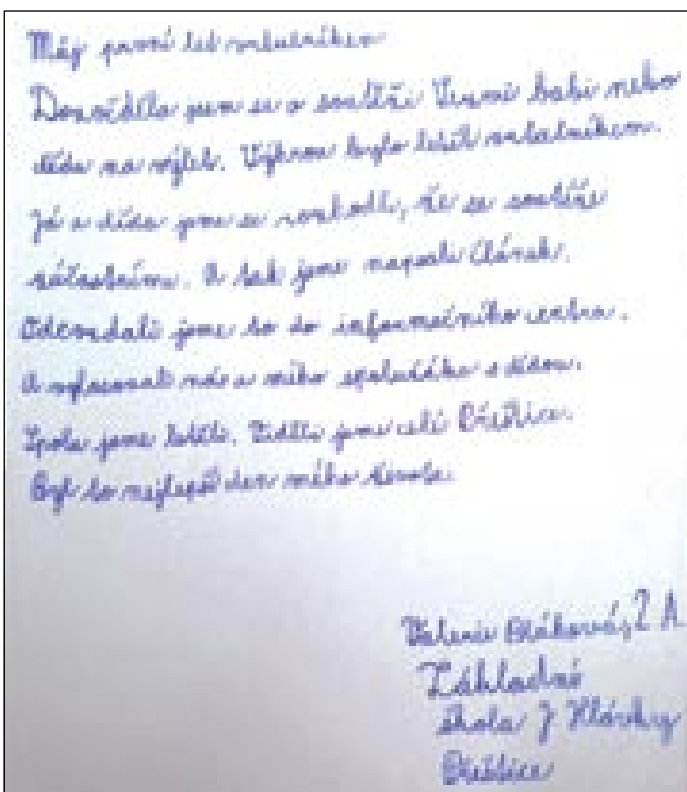 Můj první let vrtulníkem
Dozvěděla jsem se o soutěži Vezmi babi nebo
dědu na výlet. Výhrou bylo letět vrtulníkem.
Já a děda jsme se rozhodli, že se soutěže
zúčastníme. A tak jsme napsali článek.
Odevzdali jsme to do informačního centra.
A vylosovali nás a mého spolužáka s dědou.
Spolu jsme letěli. Viděli jsme celé Přeštice.
Byl to nejlepší den mého života.
Valerie 2 A
Základní
škola J Hlávky
Přeštice